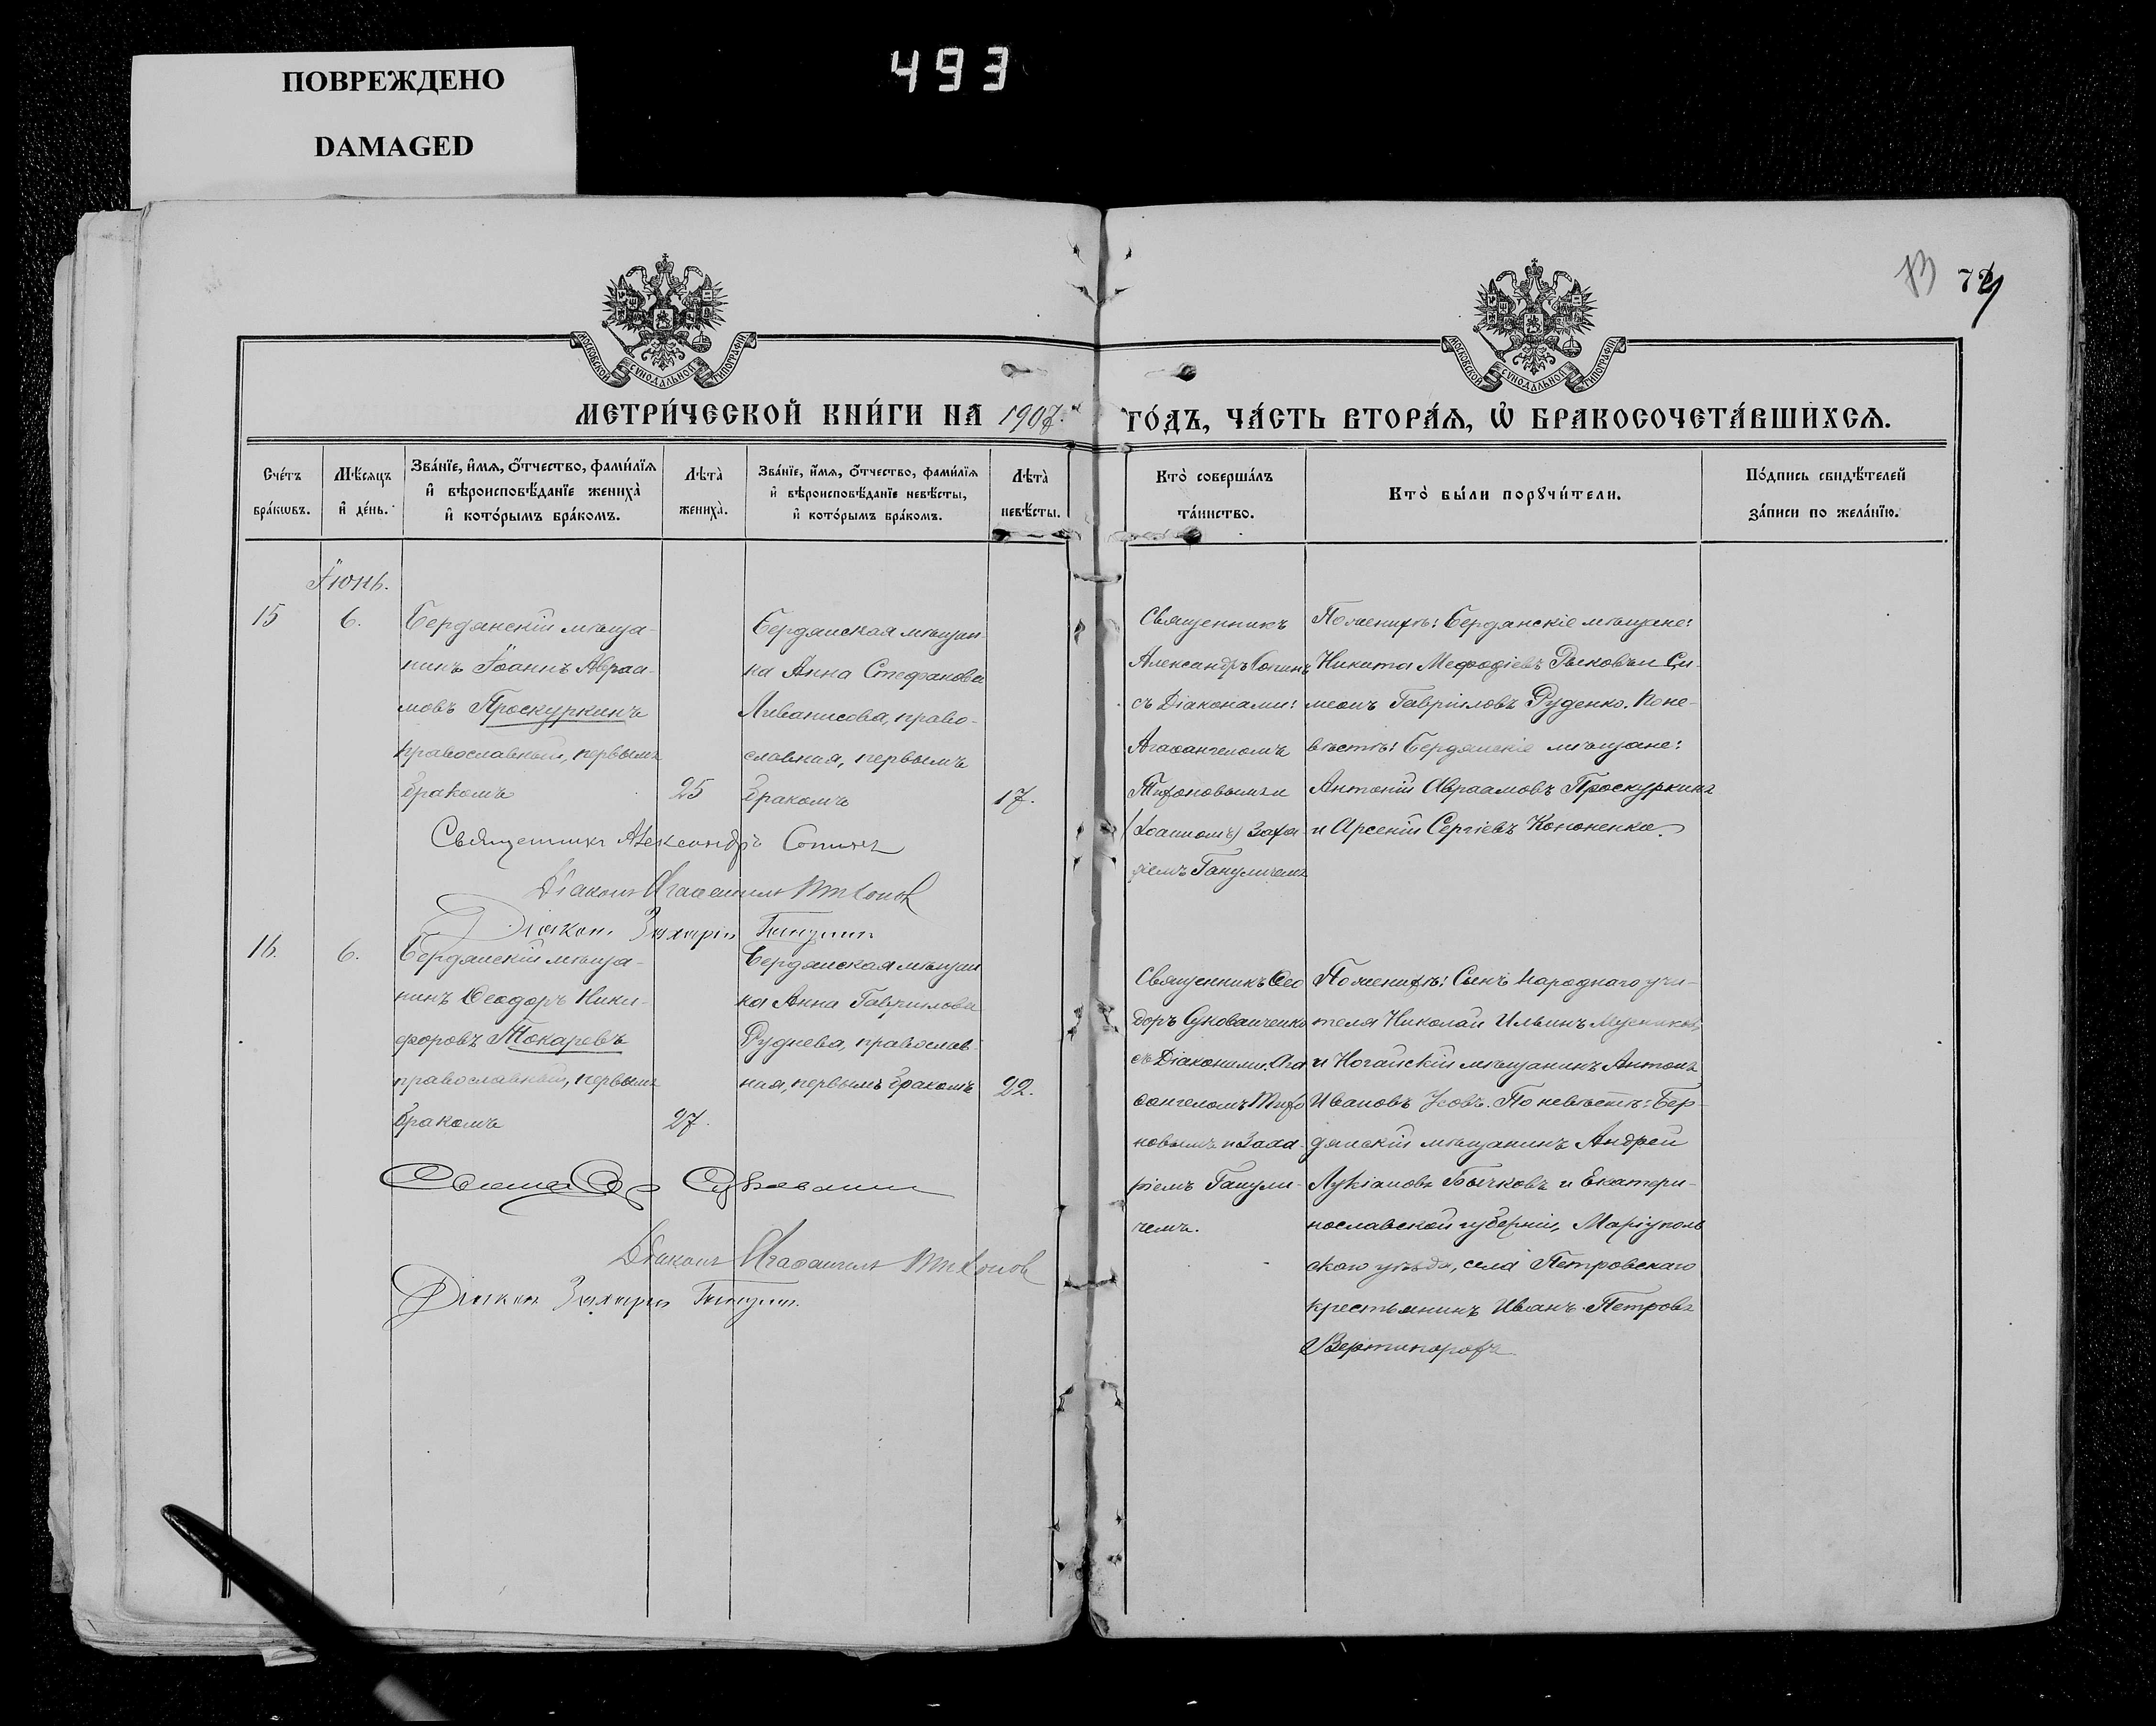 ПОВРЕЖДЕНО
DAMAGED
493
72
МОСКОВСКОЙ СѴНОДАЛЬНОЙ ТИПОГРАФІИ
МОСКОВСКОЙ СѴНОДАЛЬНОЙ ТИПОГРАФІИ
МЕТРИ́ЧЕСКОЙ КНИ́ГИ НА 1907.
ГО́ДЪ, ЧА́СТЬ ВТОРА́Я, Ѡ҆ БРАКОСОЧЕТА́ВШИХСЯ.
Сче́тъ
бра́кѡвъ.
Мѣ́сяцъ
и҆ де́нь.
Зва́нїе, и҆́мя, ѻ҆́тчество, фами́лїя
и҆ вѣроисповѣ́данїе жениха̀
и҆ кото́рымъ бра́комъ.
Лѣта̀
жениха̀.
Зва́нїе, и҆́мя, ѻ҆́тчество, фами́лїя
и҆ вѣроисповѣ́данїе невѣ́сты,
и҆ кото́рымъ бра́комъ.
Лѣта̀
невѣ́сты.
Кто̀ соверша́лъ
та́инство.
Кто̀ бы́ли порꙋчи́тели.
По́дпись свидѣ́телей
за́писи по жела́нїю.
Іюнь.
15
6.
Бердянскій мѣща-
нинъ Іоаннъ Авраа-
мовъ Проскуркинъ
православный, первымъ
бракомъ
25
Бердянская мѣщан-
ка Анна Стефанова
Ливанисова, право-
славная, первымъ
бракомъ
17.
Священникъ
Александръ Сопинъ
съ Діаконами:
Агаѳангеломъ
Тихоновымъ и
(Іоанномъ) Заха-
ріемъ Гануличемъ
По женихѣ: Бердянскіе мѣщане:
Никита Меѳодіевъ Рыковъ и Си-
меонъ Гавріиловъ Руденко. По не-
вѣстѣ: Бердянскіе мѣщане:
Антоній Авраамовъ Проскуркинъ
и Арсеній Сергіевъ Кононенко.
Священникъ Александръ Сопинъ
Діаконъ Агаѳангелъ Тихоновъ
Діаконъ Захарій Ганулич
16.
6.
Бердянскій мѣща-
нинъ Ѳеодоръ Ники-
форовъ Токаревъ
православный, первымъ
бракомъ
27.
Бердянская мѣщан
ка Анна Гавріилова
Руднева, православ-
ная, первымъ бракомъ
22.
Священникъ Ѳео
доръ Суковаченко
съ Діаконами, Ага
ѳангеломъ Тихо
новымъ и Заха-
ріемъ Ганули-
чемъ.
По женихѣ: Сынъ народнаго учи-
теля Николай Ильинъ
и Ногайскій мѣщанинъ Антонъ
Ивановъ Усовъ. По невѣстѣ: Бер-
дянскій мѣщанинъ Андрей
Лукіановъ Бычковъ и Екатери-
нославской губерніи, Маріуполь
скаго уѣзда, села Петровскаго
крестьянинъ Иванъ Петровъ
Вертипорохъ
Діаконъ Агаѳангелъ Тихоновъ
Діаконъ Захарій Ганулич